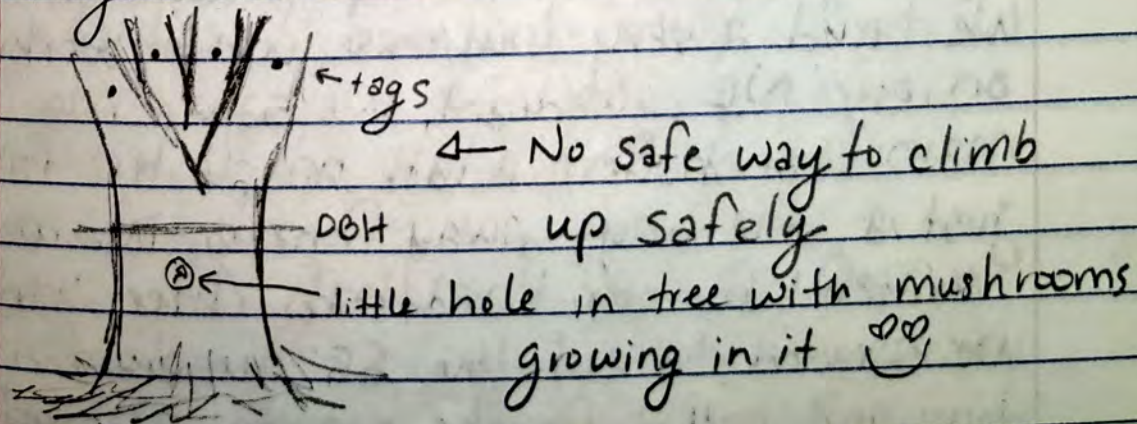 tags
No safe way to climb
DBH up safely
little hole in tree with mushrooms
growing in it